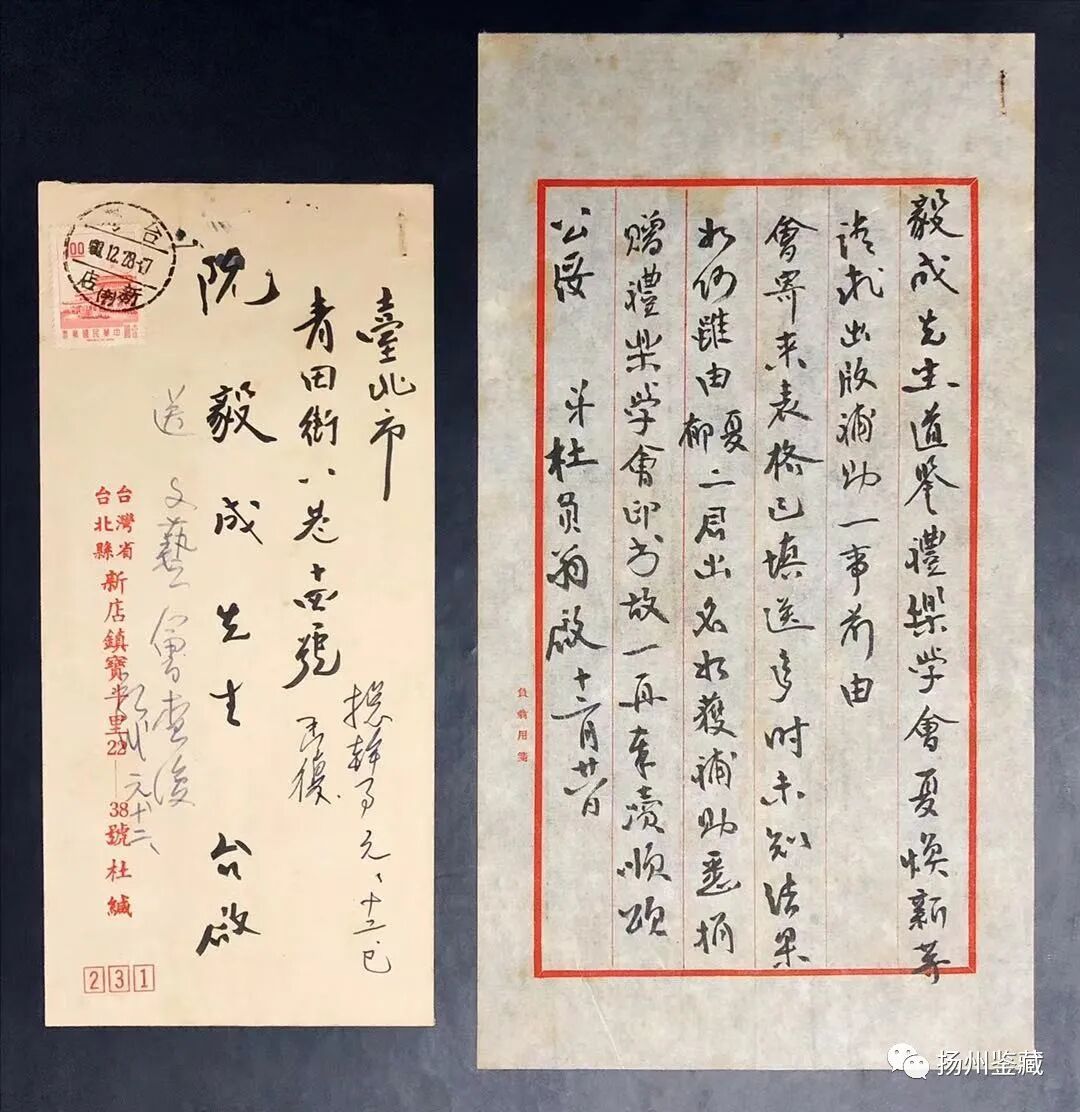 毅成先生道鉴禮樂学會夏焕新等
請求出版補助一事前由
會寄来表格已填送多时未知结果
如何雖由夏郁二君出名如獲補助悉捐
贈禮樂学會印书故一再奉瀆順頌
公绥 弟杜負翁啟 十二月廿日
負翁用箋
臺北市
青田街八巷十四號
阮毅成先生 台啟
已復
送文藝會查後
元、十二、
台灣省
台北縣
新店鎮寶斗里22—38號杜緘
231
台湾
12.28
新店
1.00
中華民國郵票
扬州鉴藏